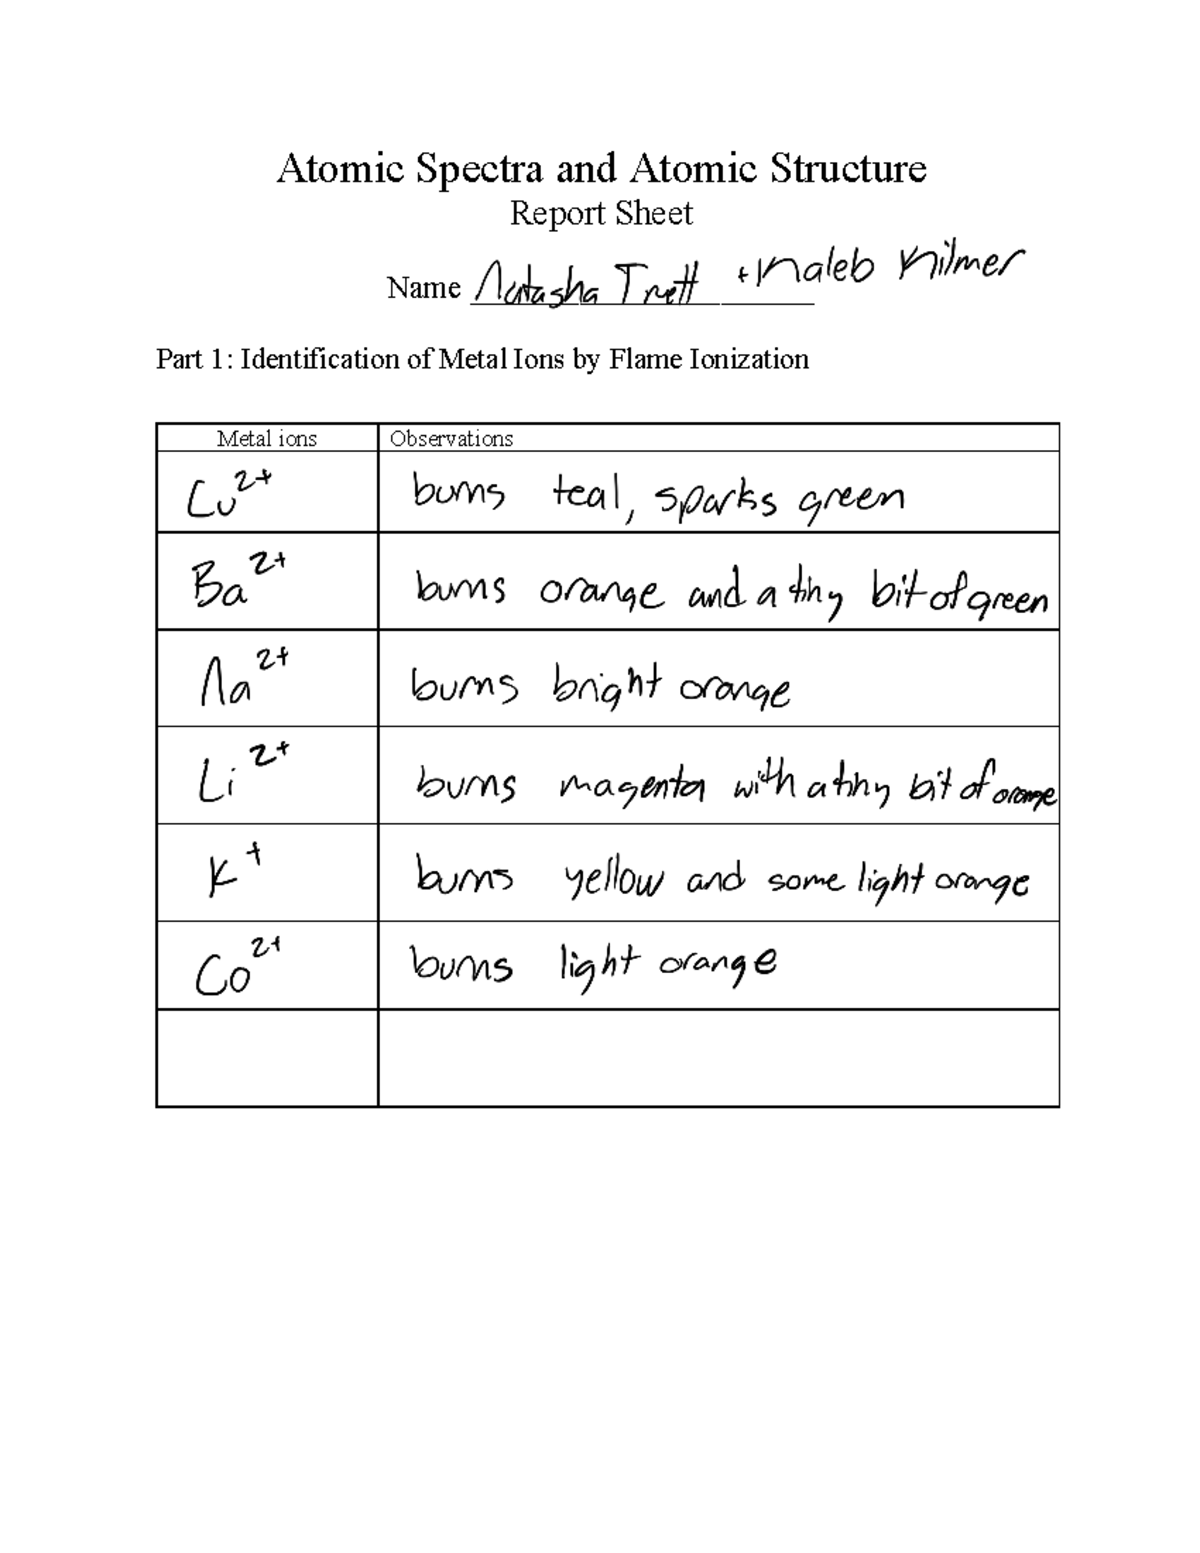 Atomic Spectra and Atomic Structure
Report Sheet
Name Natasha Trett + Kaleb Kilmer
Part 1: Identification of Metal Ions by Flame Ionization
Metal ions Observations
Cu²⁺ burns teal, sparks green
Ba²⁺ burns orange and a tiny bit of green
Na²⁺ burns bright orange
Li²⁺ burns magenta with a tiny bit of orange
K⁺ burns yellow and some light orange
Co²⁺ burns light orange